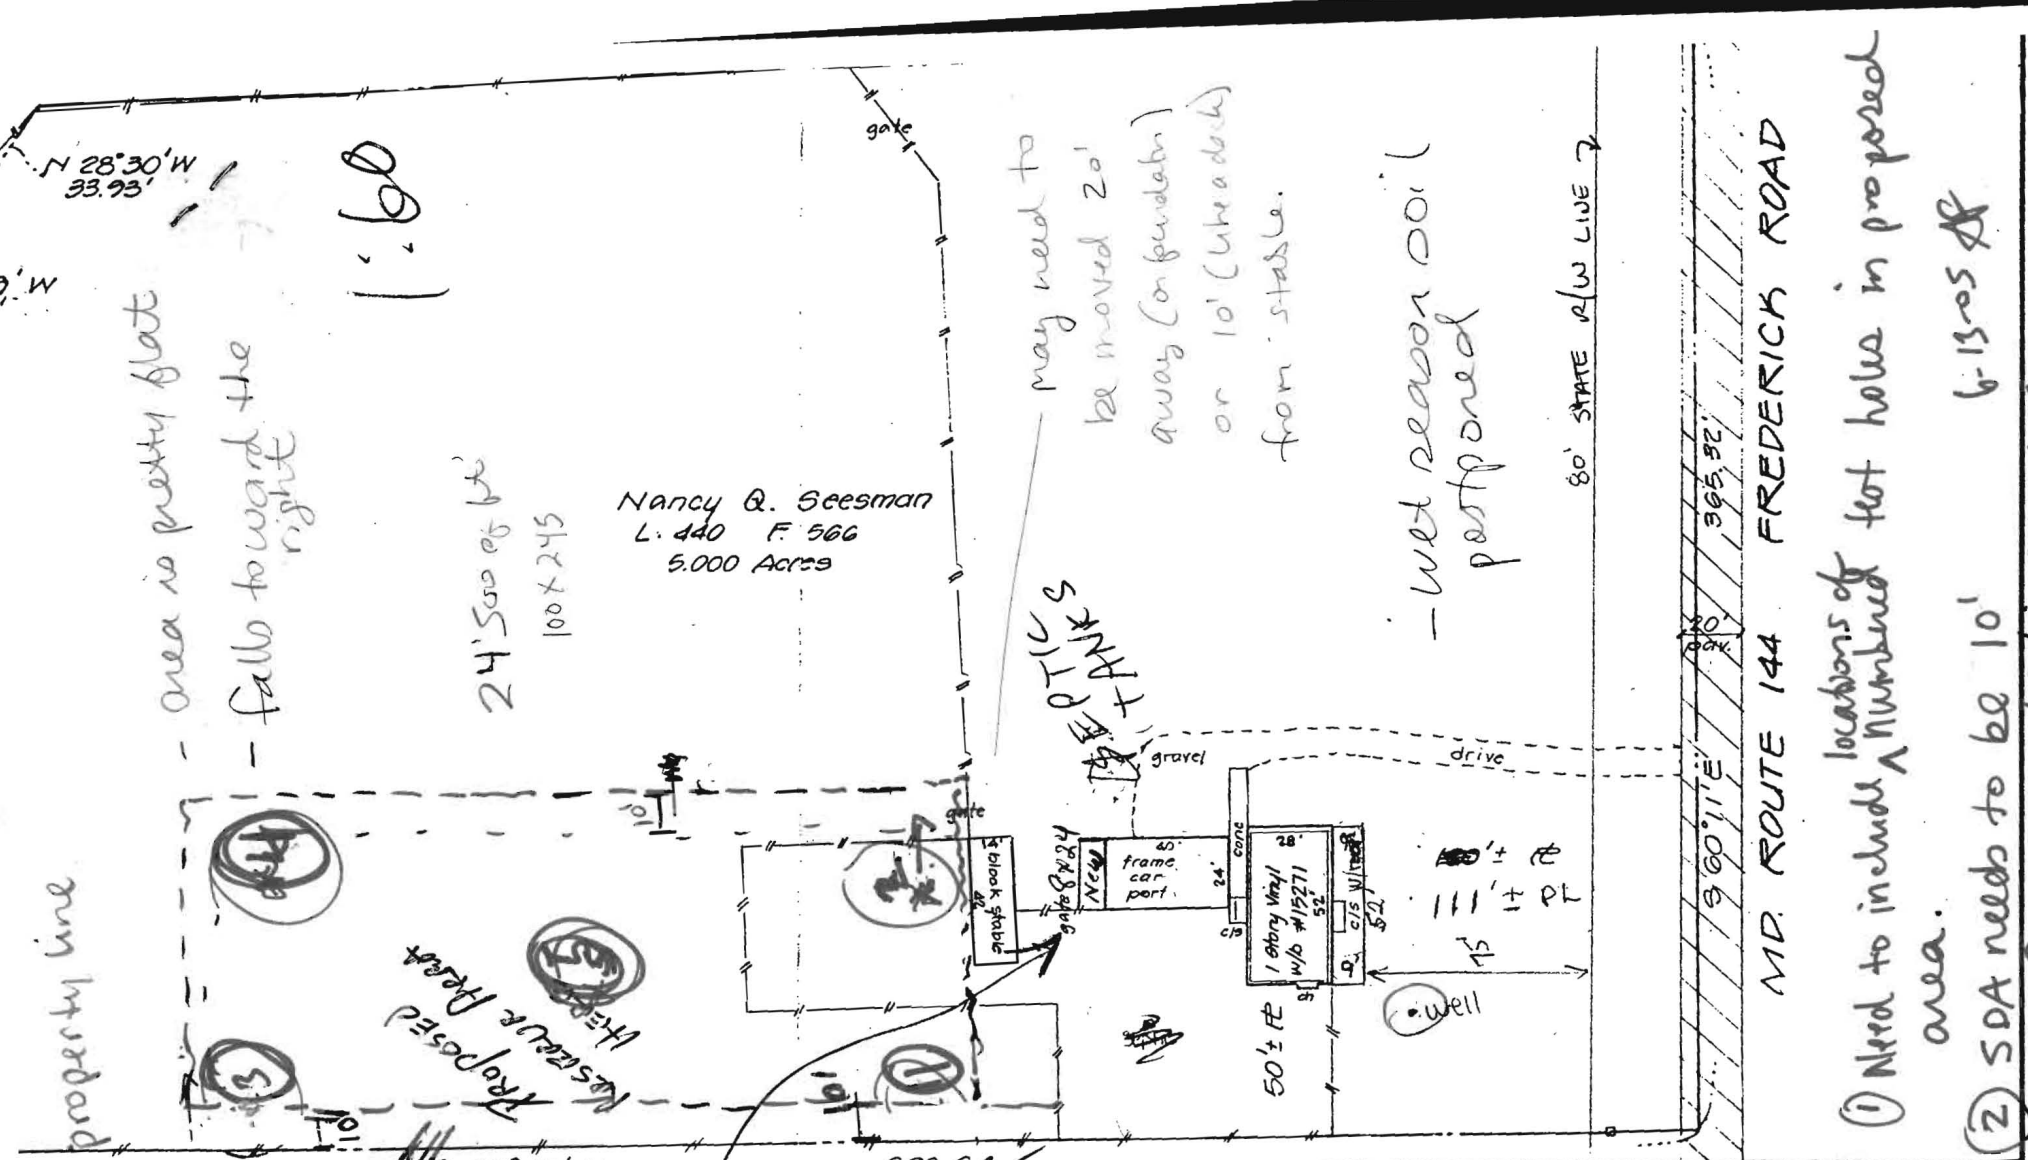 N 28°30'W
33.93'
W
- area is pretty flat
- falls toward the
right
1":60
24'500 of ft²
100 X 245
Nancy Q. Seesman
L. 440 F. 566
5.000 Acres
gate
may need to
be moved 20'
away (on foundation)
or 10' (like a deck)
from stable.
- wet season soil
postponed
80' STATE R/W LINE
365.32'
20'
pav.
S 60°11'E
MD. ROUTE 144 FREDERICK ROAD
① Need to include locations of numbered test holes in proposed
area.
② SDA needs to be 10'
6-13-05
SEPTIC
TANKS
gravel
drive
gate
10'
block stable
gate
8x24
New
frame
car
port
24'
conc
28'
1 Story Vinyl
W/B #15271
52'
c/s
c/s W/roof
52'
111'±
75'
well
50'±
PROPOSED
RESERVE AREA
property line
3
1
10'
10'